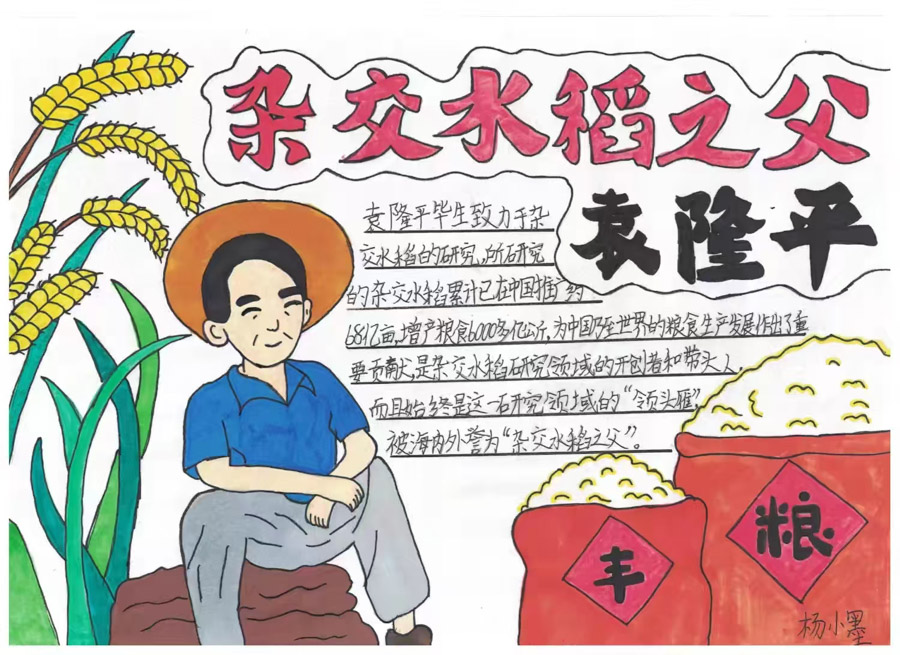 杂交水稻之父
袁隆平
袁隆平毕生致力于杂
交水稻的研究,所研究
的杂交水稻累计已在中国推广约
68亿亩,增产粮食6000多亿公斤,为中国乃至世界的粮食生产发展作出了重
要贡献,是杂交水稻研究领域的开创者和带头人,
而且始终是这一研究领域的“领头雁”,
被海内外誉为“杂交水稻之父”。
丰
粮
杨小墨